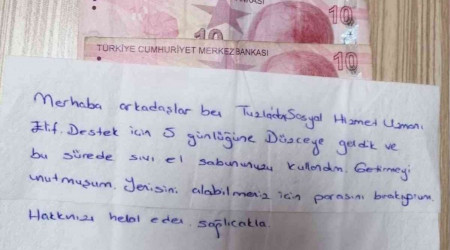 ANKASI
10
TÜRKİYE CUMHURİYET MERKEZ BANKASI
10
Merhaba arkadaşlar ben Tuzla'da Sosyal Hizmet Uzmanı
Elif. Destek için 5 günlüğüne Düzceye geldik ve
bu sürede sıvı el sabununuzu kullandım. Getirmeyi
unutmuşum. Yenisini alabilmeniz için parasını bırakıyorum.
Hakkınızı helal eder sağlıcakla.